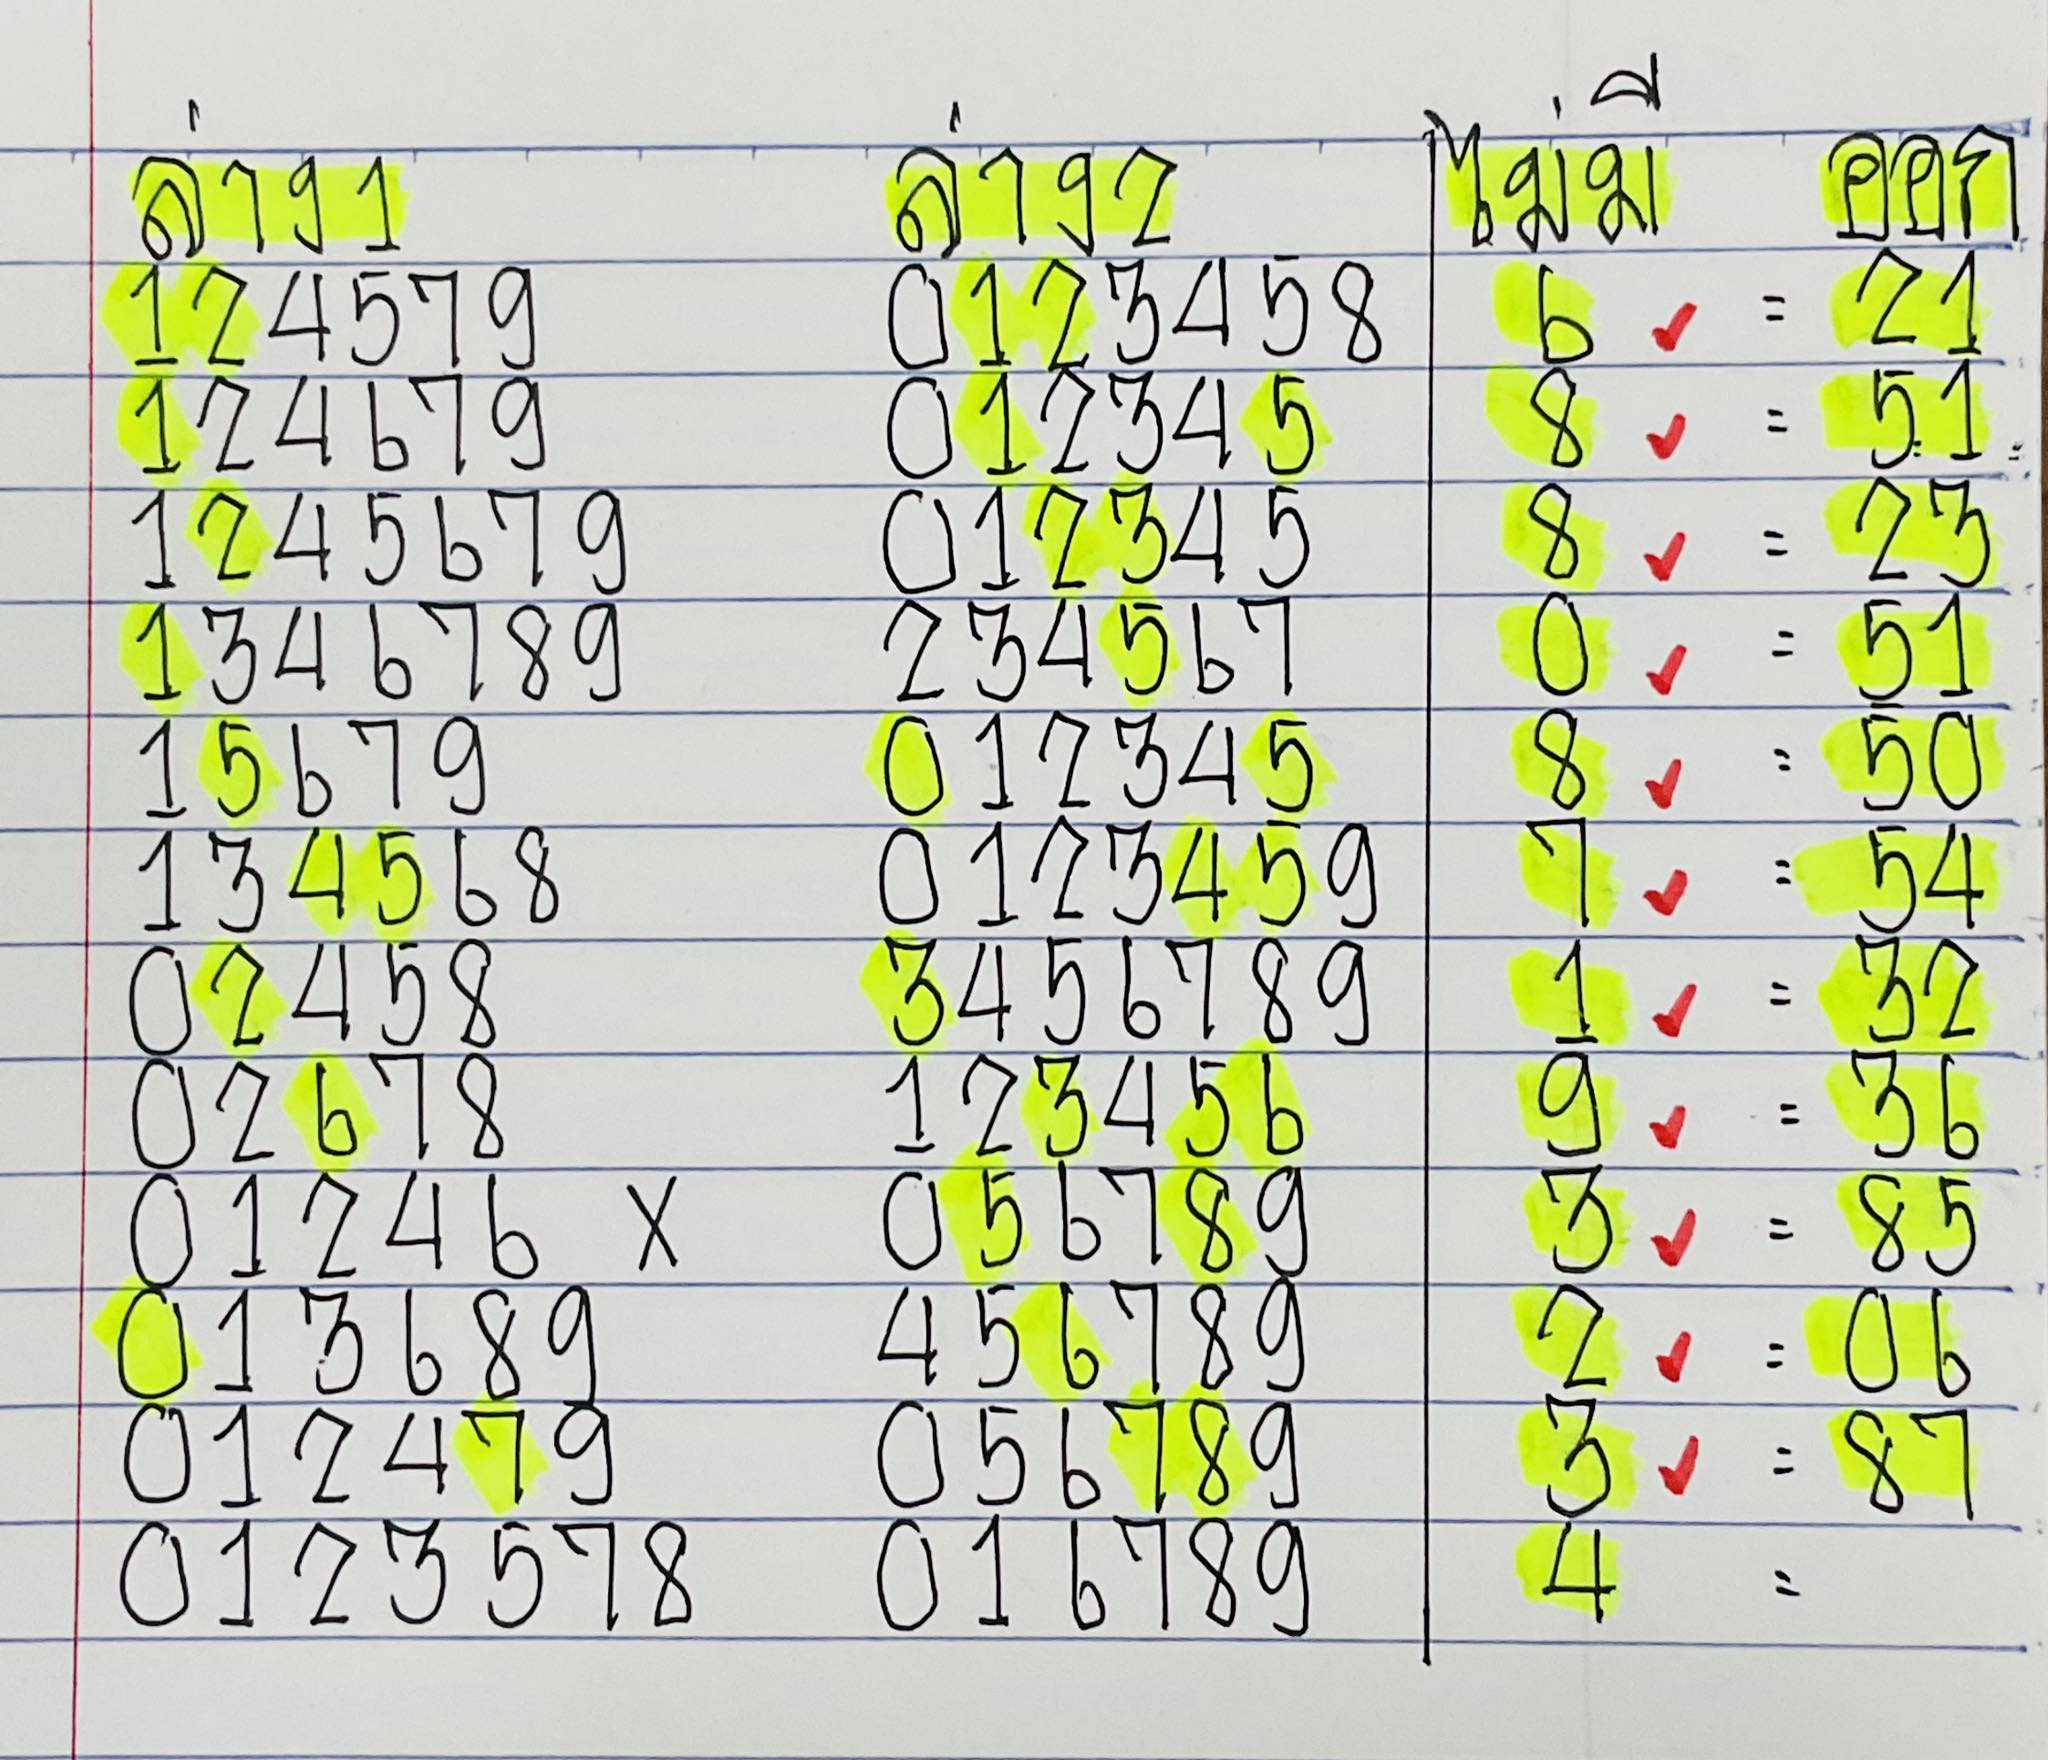 ล่าง1 ล่าง2 ไม่มี ออก
124579 0123458 6 ✓ = 21
124679 012345 8 ✓ = 51
1245679 012345 8 ✓ = 23
1346789 234567 0 ✓ = 51
15679 012345 8 ✓ = 50
134568 0123459 7 ✓ = 54
02458 3456789 1 ✓ = 32
02678 123456 9 ✓ = 36
01246 X 056789 3 ✓ = 85
013689 456789 2 ✓ = 06
012479 056789 3 ✓ = 87
0123578 016789 4 =